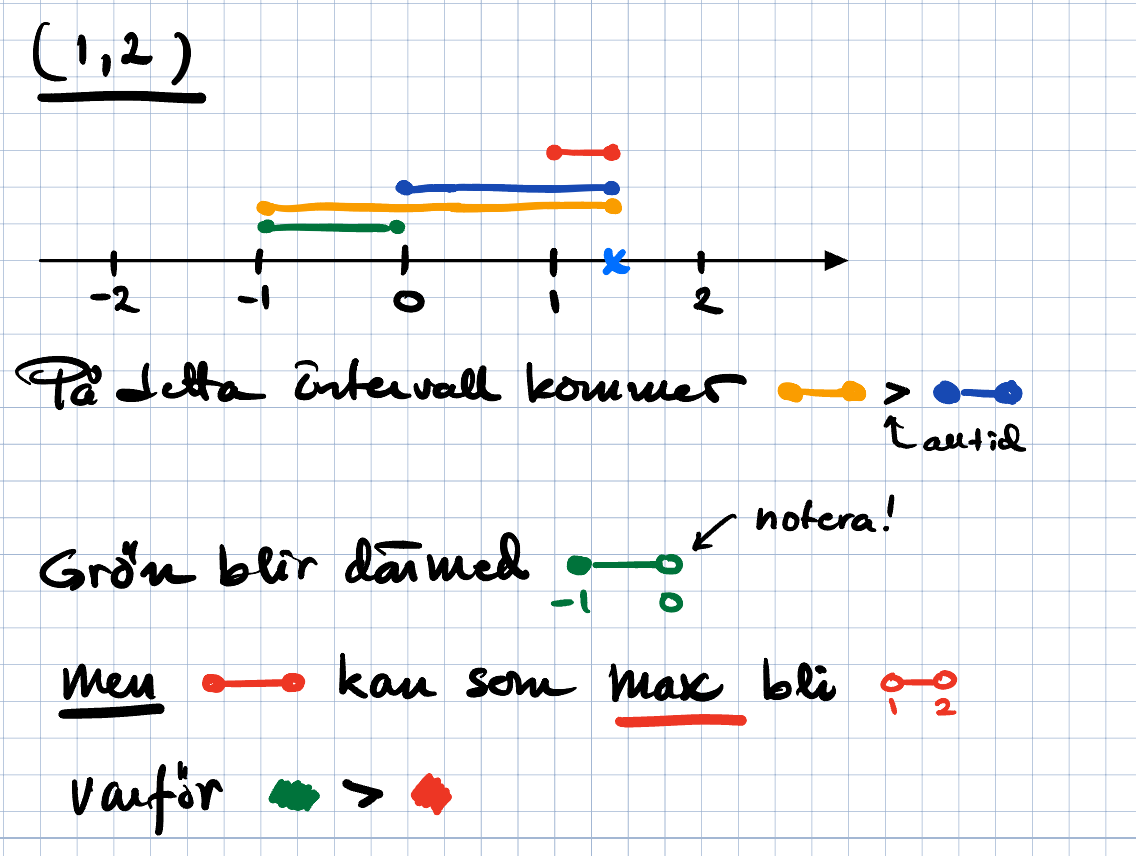 (1,2)
-2 -1 0 1 2
På detta intervall kommer >
alltid
notera!
Grön blir därmed
-1 0
men kan som max bli
1 2
varför >